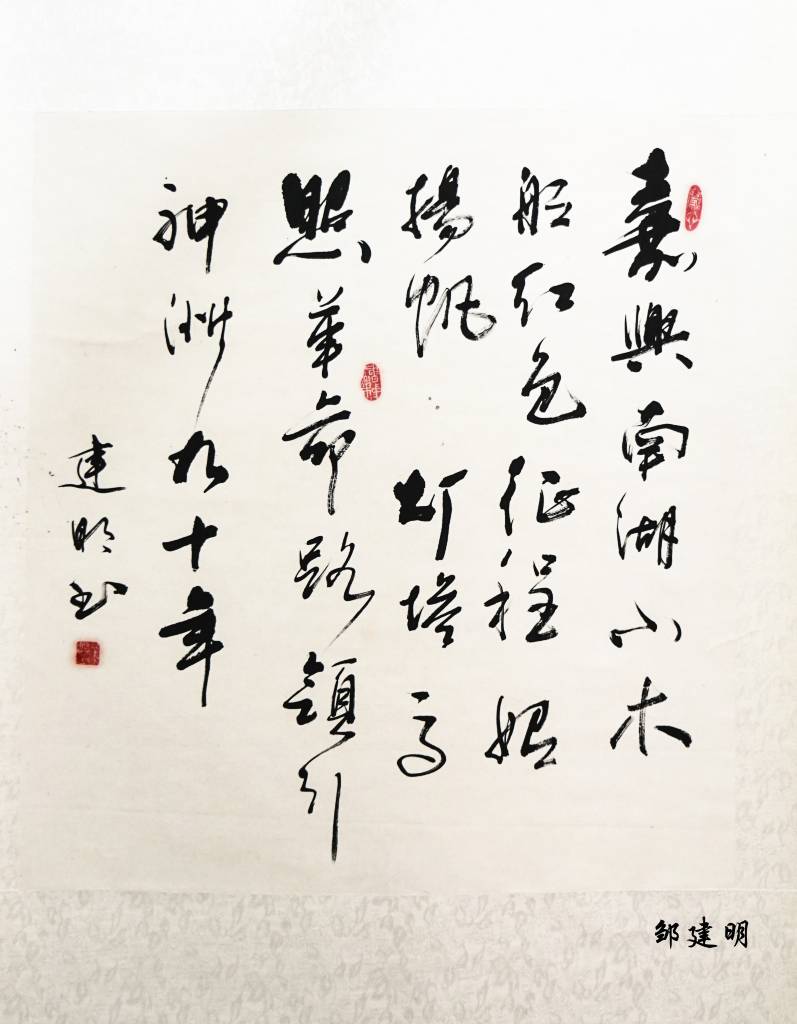 嘉興南湖小木
船红色征程始
揚帆 灯塔高
照革命路領引
神洲九十年
建明书
邹建明